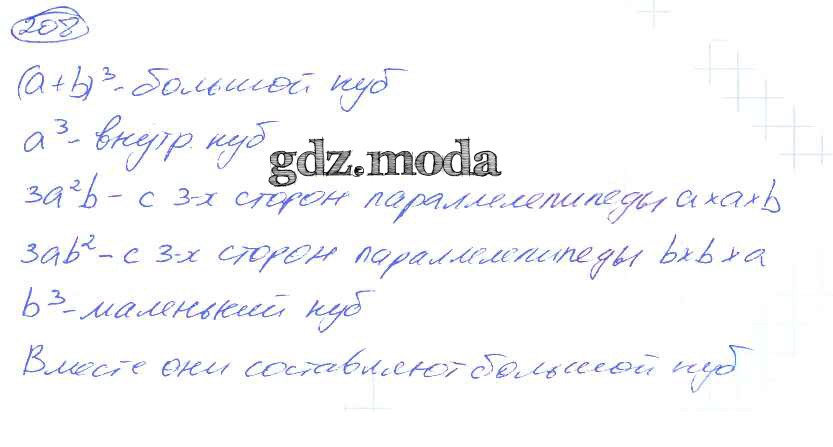 208
(a+b)³ - большой куб
a³ - внутр. куб
gdz.moda
3a²b - с 3-х сторон параллелепипеды a×a×b
3ab² - с 3-х сторон параллелепипеды b×b×a
b³ - маленький куб
Вместе они составляют большой куб